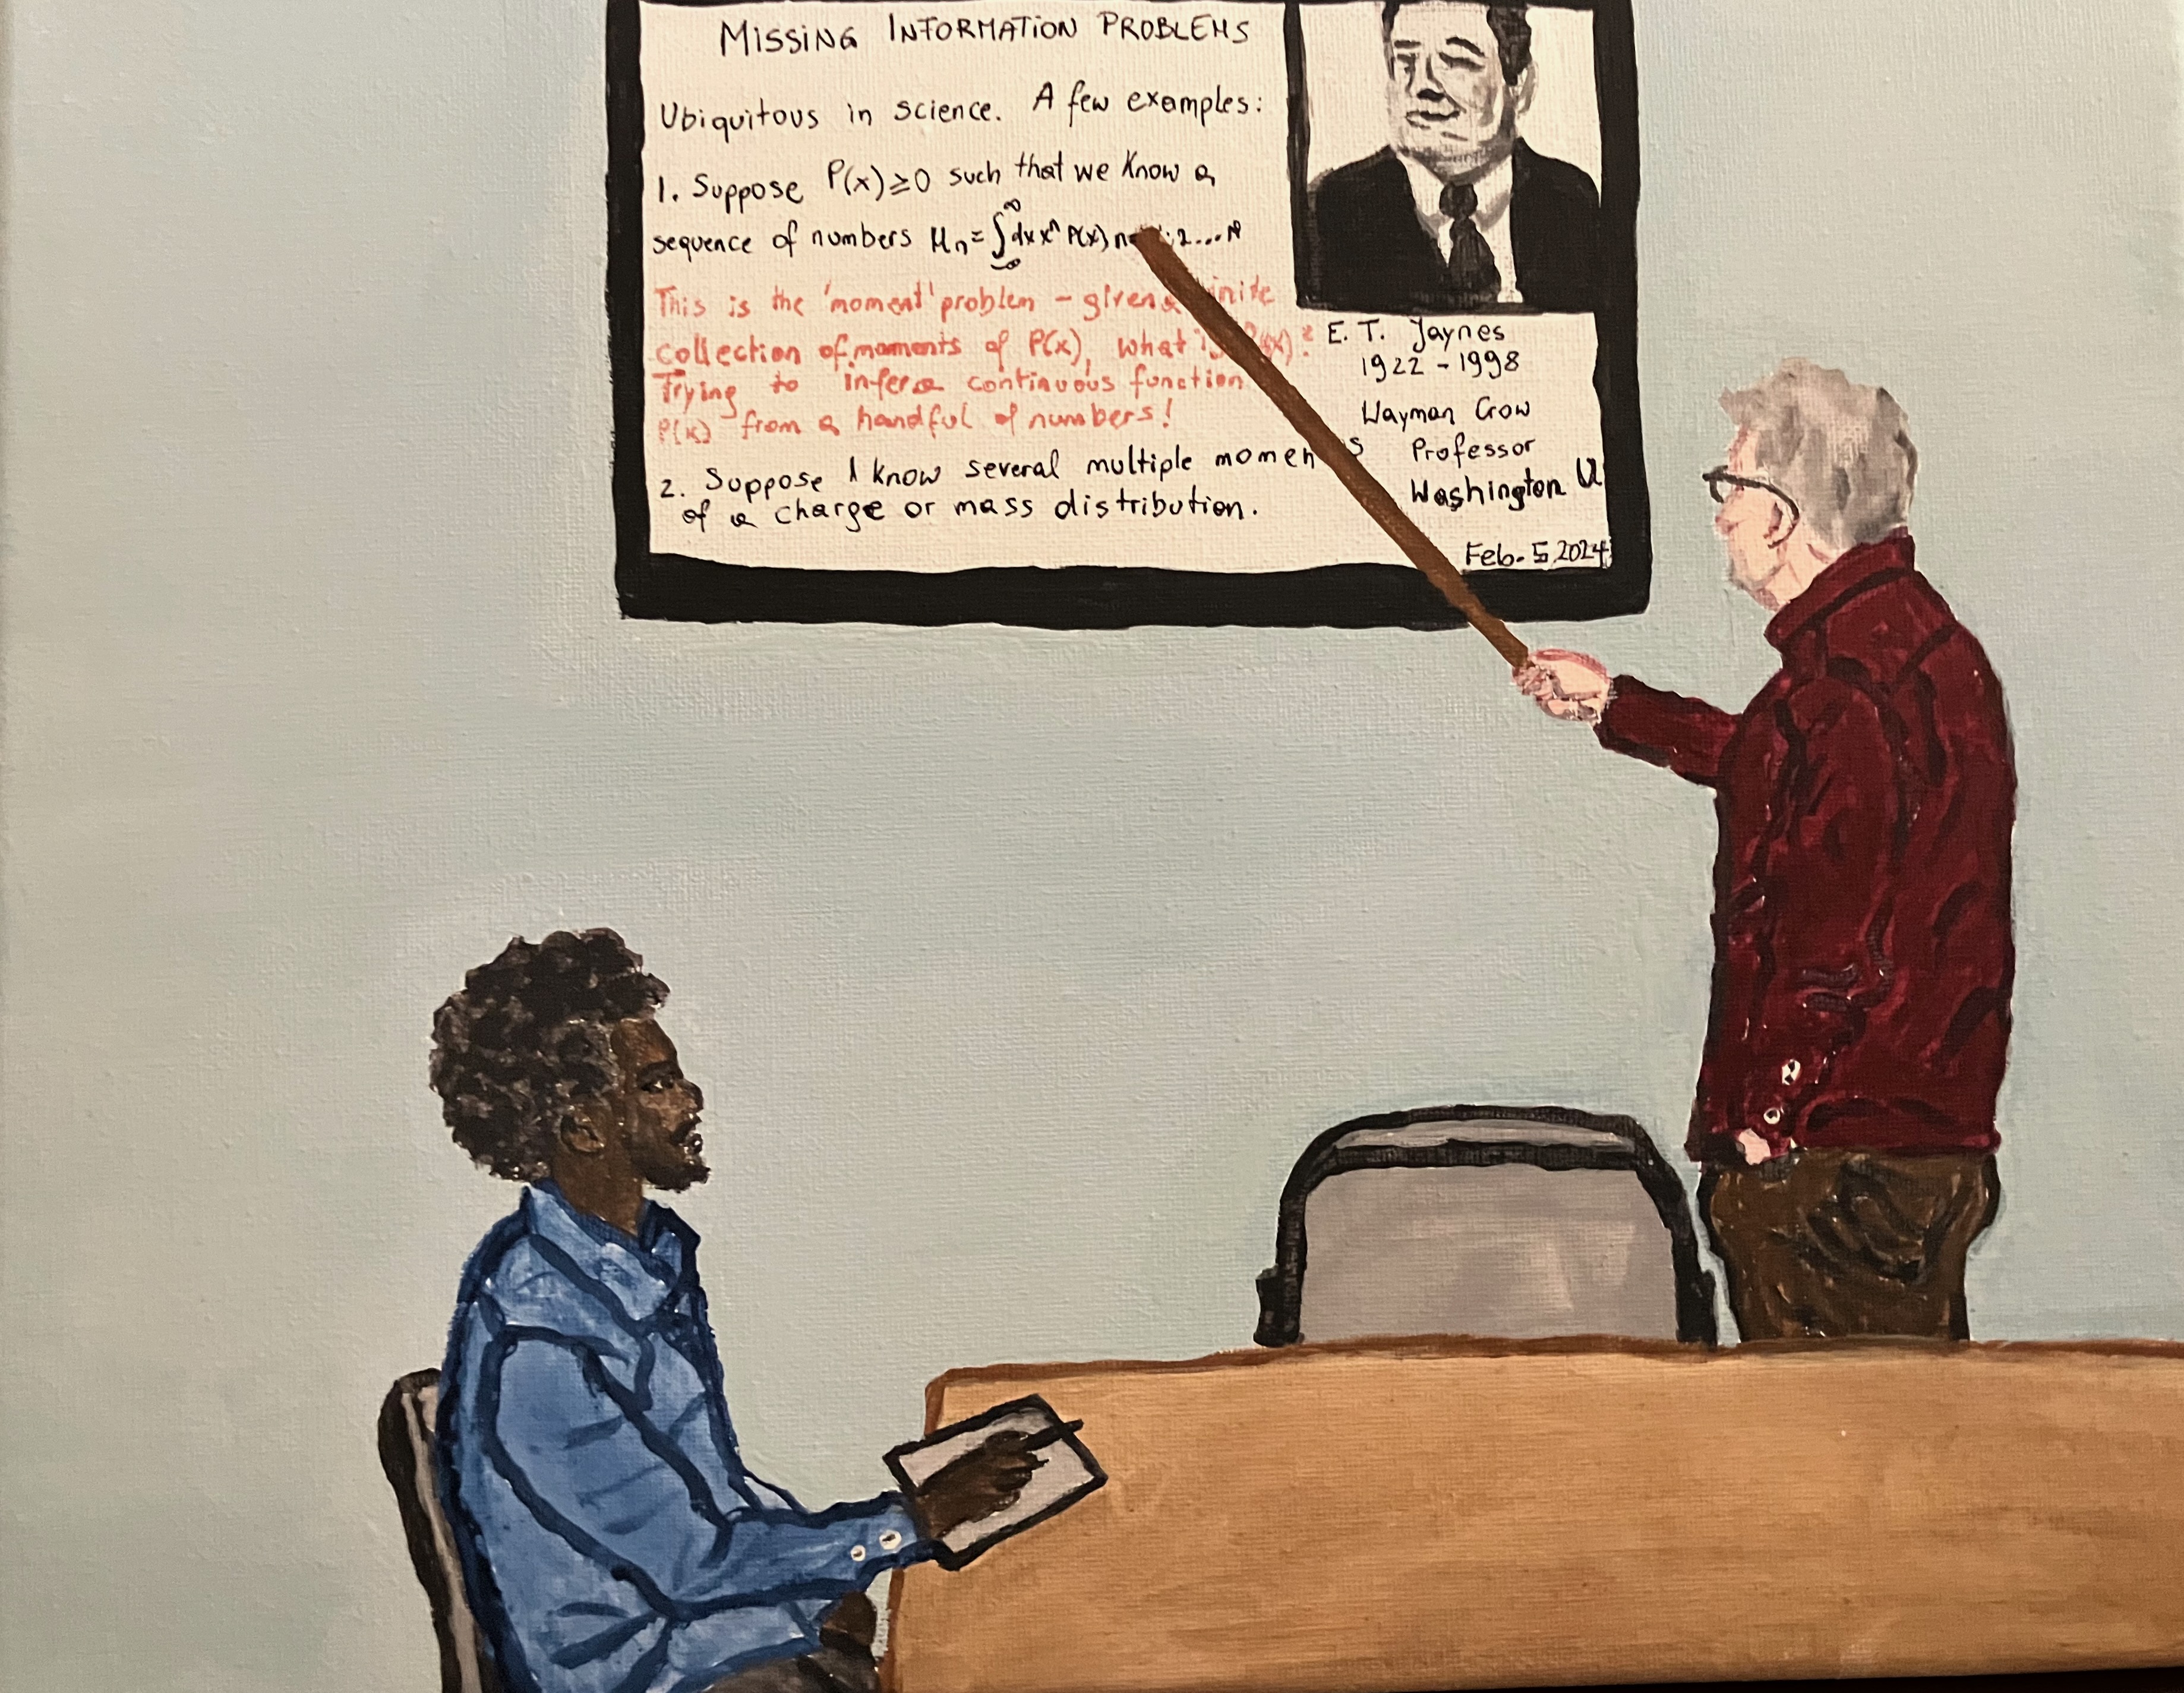 MISSING INFORMATION PROBLEMS
Ubiquitous in science. A few examples:
1. Suppose P(x)≥0 such that we know a
sequence of numbers μₙ=∫₋∞^∞ dx xⁿ P(x) n 2...N
This is the 'moment' problem - given a inite
collection of moments of P(x), what is P(x)?
Trying to infer a continuous function
P(x) from a handful of numbers!
2. Suppose I know several multiple momen s
of a charge or mass distribution.
E. T. Jaynes
1922 - 1998
Wayman Crow
Professor
Washington U
Feb. 5, 2024